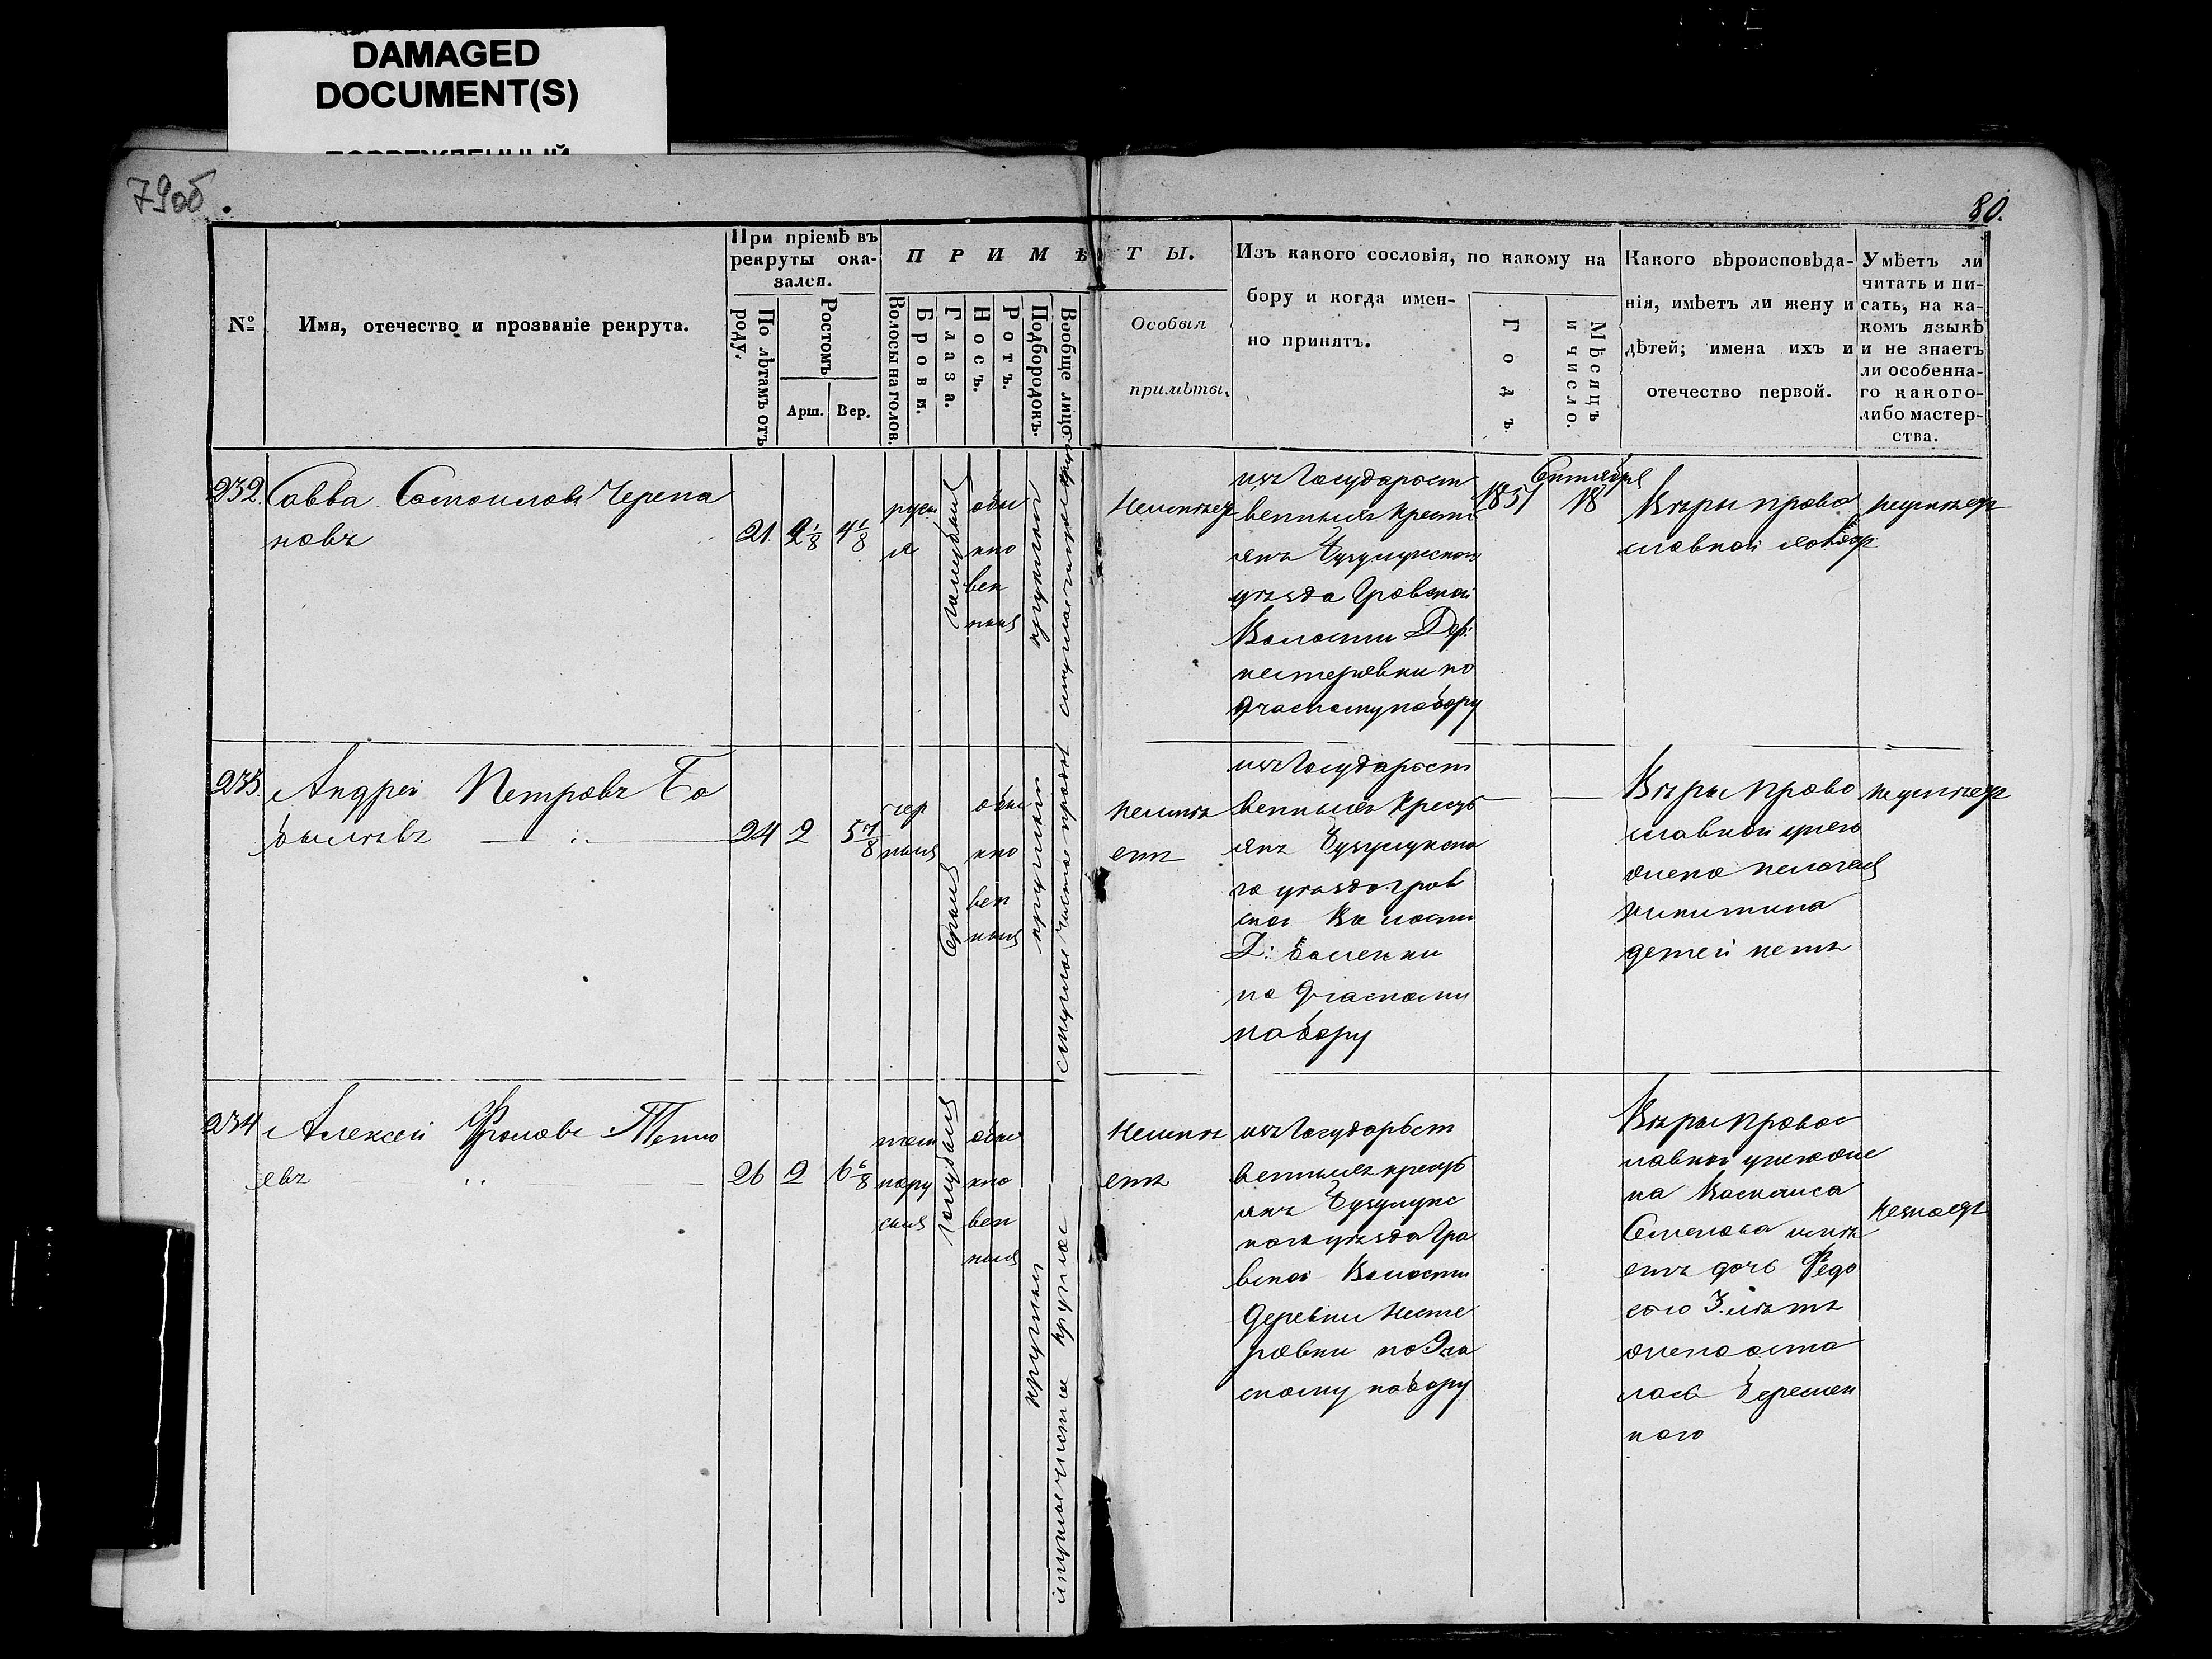 DAMAGED
DOCUMENT(S)
ПОВРЕЖДЕННЫЙ
79об.
80.
№
Имя, отечество и прозваніе рекрута.
При пріемѣ въ
рекруты ока-
зался.
По лѣтамъ отъ
роду.
Ростомъ
Арш.
Вер.
ПРИМѢТЫ.
Волосы на голов.
Брови.
Глаза.
Носъ.
Ротъ.
Подбородокъ.
Вообще лицо.
Особыя
примѣты.
Изъ какого сословія, по какому на
бору и когда имен-
но принятъ.
Годъ.
Мѣсяцъ
и число.
Какого вѣроисповѣда-
нія, имѣетъ ли жену и
дѣтей; имена ихъ и
отечество первой.
Умѣетъ ли
читать и пи-
сать, на ка-
комъ языкѣ
и не знаетъ
ли особенна-
го какого-
либо мастер-
ства.
232.
Савва Самоиловъ Черепа
новъ
21.
2 1/8
4 1/8
русы
я
обы
кно
вен
ныя
круглый
изъ Государст
венныхъ крести
янъ Бузулукскаго
уѣзда Гровской
Волости Дер:
нестеровки по
9 часному набору
1851
Сентября
18
Вѣры право
славной холостъ
неумѣетъ
233.
Андрей Петровъ Бо
былевъ
24
2
5 7/8
чер
ныя
обы
кно
вен
ныя
круглый
неимѣ
етъ
изъ Государст
венныхъ кресть
янъ Бузулукска
го уѣзда гров
ской Волости
Д:
по 9 часному
набору
Вѣры право
славной
жена пелагея
никитина
детей нетъ
неумѣетъ
234
Алексей Фроловъ
евъ
26
2
6 6/8
темно
нору
сыя
голубыя
обы
кно
вен
ныя
круглый
неимѣ
етъ
изъ Государьст
венныхъ кресть
янъ Бузулукс
каго уѣзда Гро
вской Волости
деревни Несте
ровки по 9 ча
сному набору
Вѣры правос
лавной у него же
на Василиса
Семенова имѣ
етъ дочь Федо
сью 3. летъ
жена оста
лась беремен
ною
незнаетъ